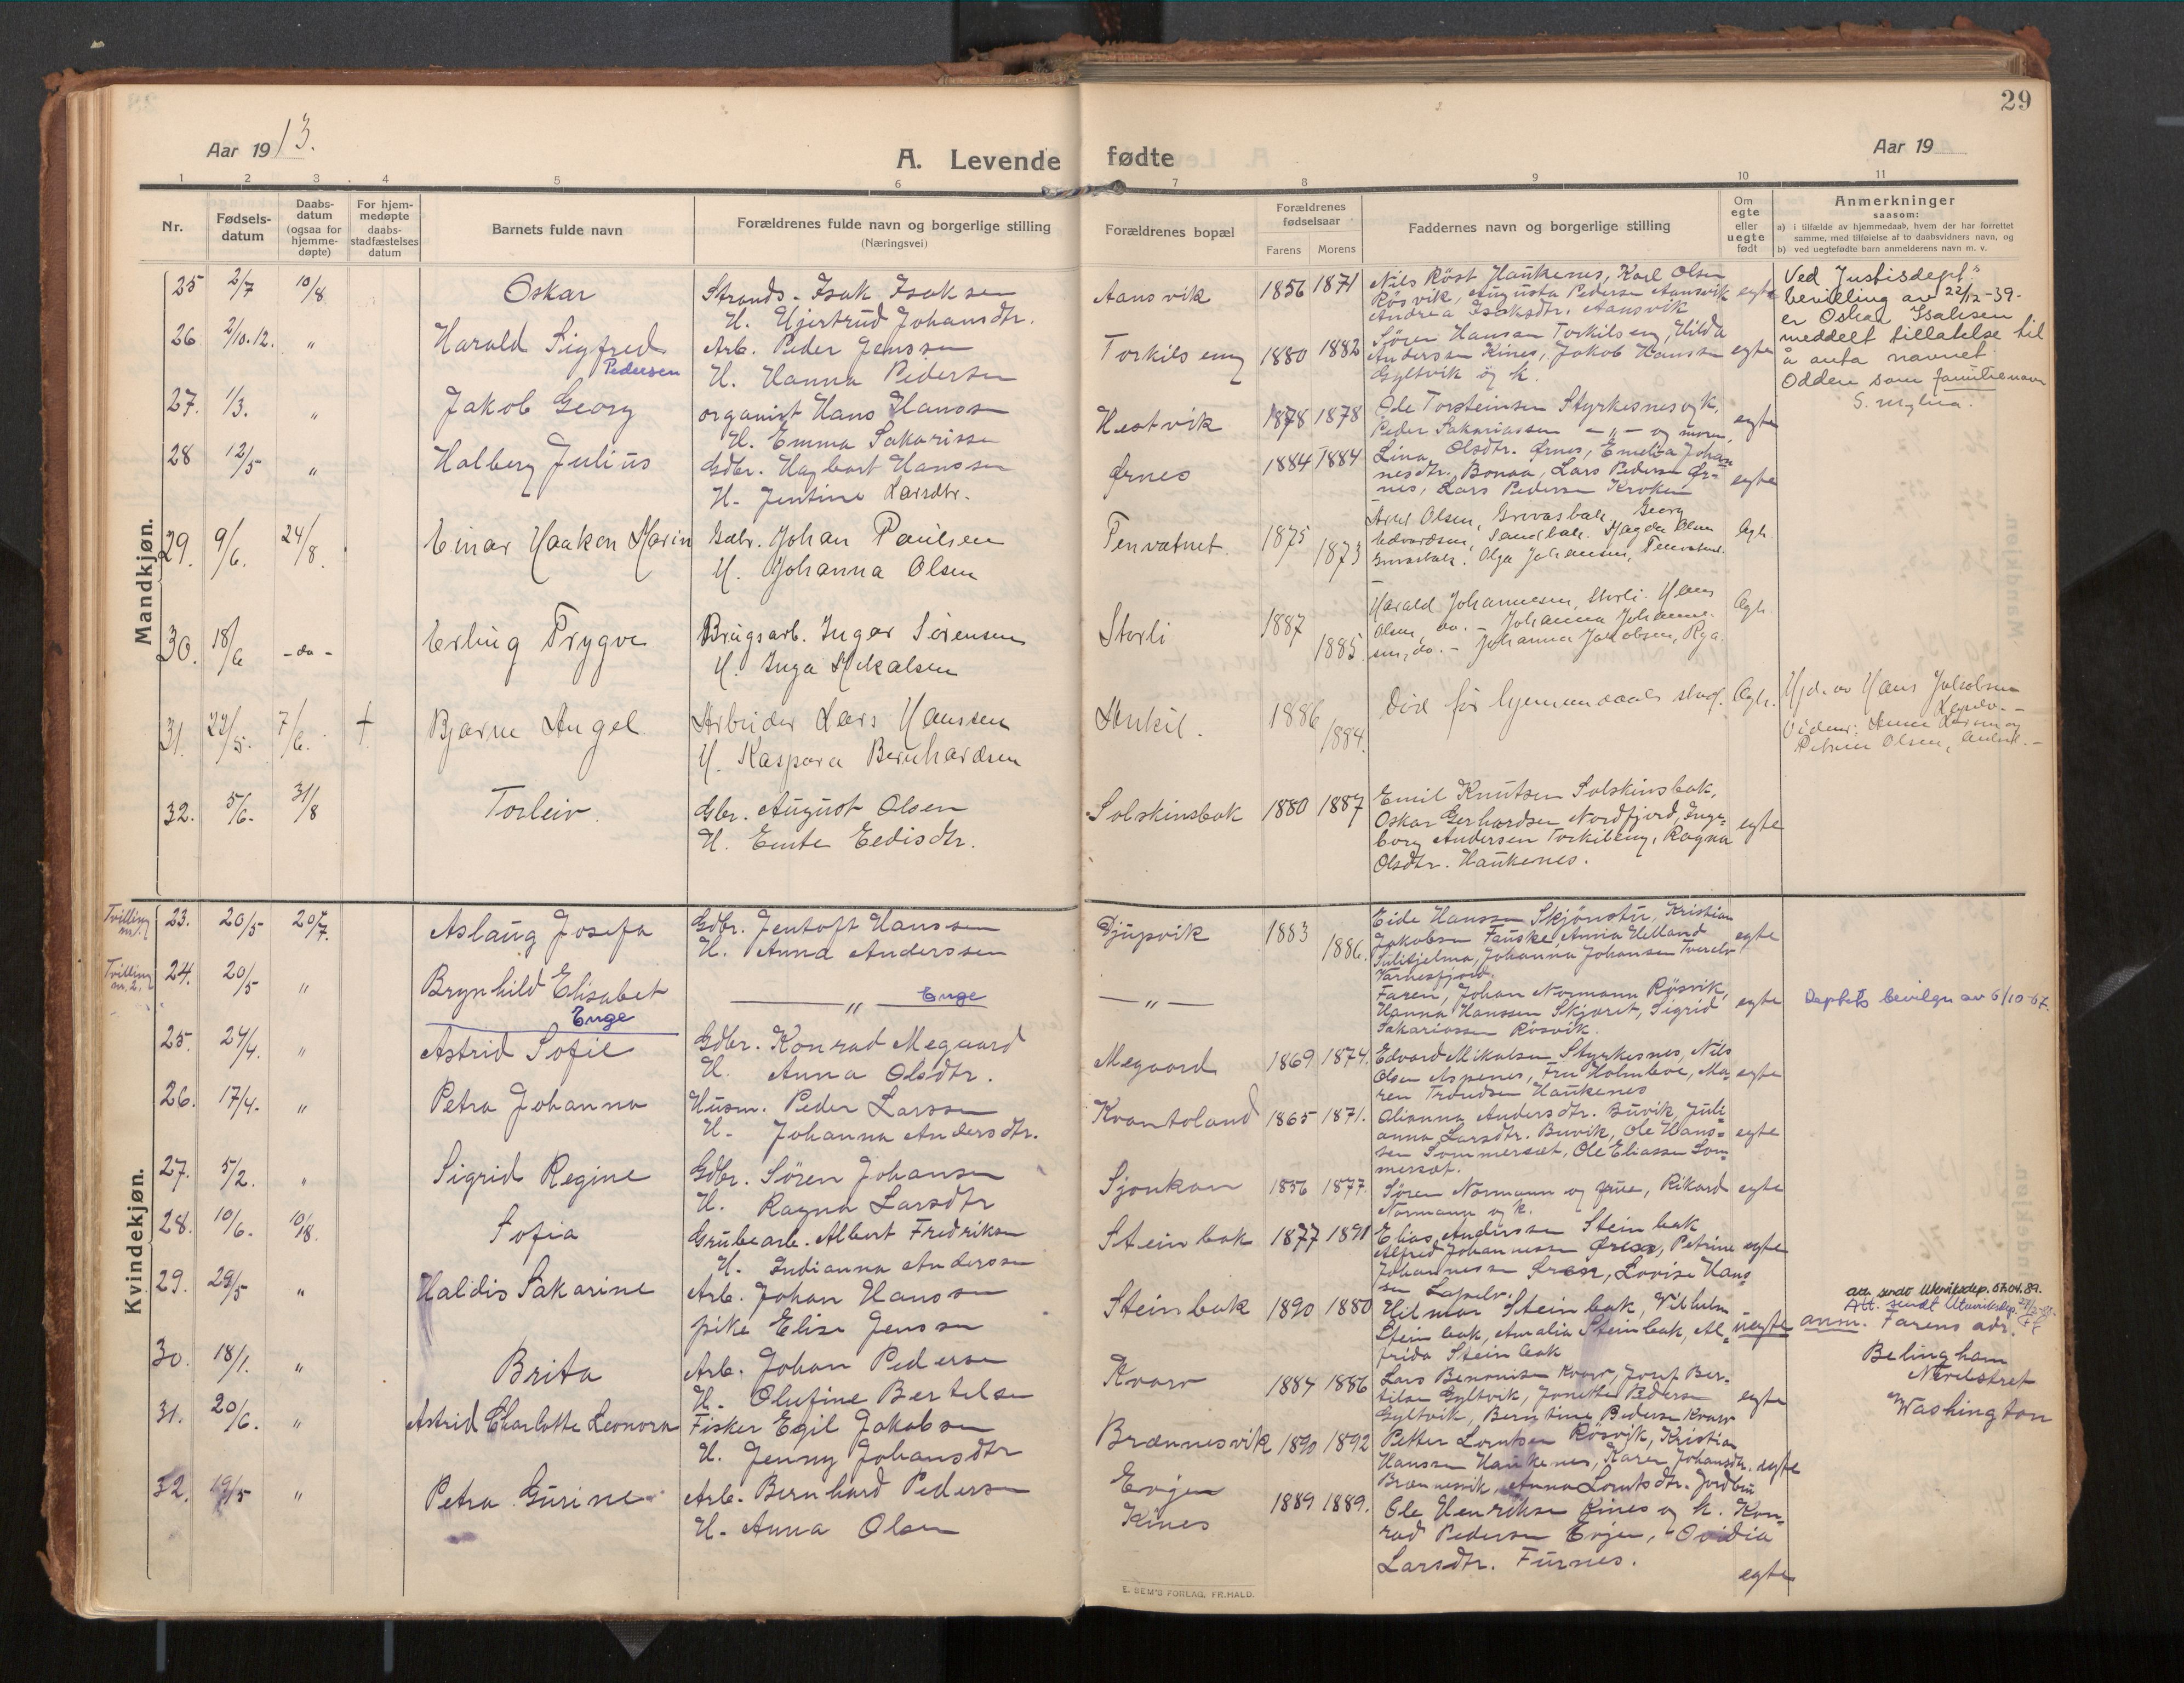 29
Aar 1913.
A. Levende fødte
Aar 19
1 2 3 4 5 6 7 8 9 10 11
Nr.
Fødsels-
datum
Daabs-
datum
(ogsaa for
hjemme-
døpte)
For hjem-
medøpte
daabs-
stadfæstelses
datum
Barnets fulde navn
Forældrenes fulde navn og borgerlige stilling
(Næringsvei)
Forældrenes bopæl
Forældrenes
fødselsaar
Farens Morens
Faddernes navn og borgerlige stilling
Om
egte
eller
uegte
født
Anmerkninger
saasom:
a) i tilfælde av hjemmedaab, hvem der har forrettet
samme, med tilføielse af to daabsvidners navn, og
b) ved uegtefødte barn anmelderens navn m. v.
Mandkjøn.
25 2/7 10/8 Oskar
Strands. Isak Isaksen
H. Gjertrud Johansdtr.
Aansvik 1856 1871
Nils Röst Haukenes, Karl Olsen
Rösvik, Augusta Pedersen Aansvik
Andrea Isaksdtr. Aansvik
egte
Ved Justisdept.s
bevilling av 22/12-39.
er Oskar Isaksen
meddelt tillatelse til
å anta navnet
Odden som familienavn
26 2/10.12. " Harald Sigfred
Pedersen
Arb. Peder Jenssen
H. Hanna Pedersen
Torkilseng 1880 1882
Sören Hansen Torkilseng, Hilda
Andersen Kines, Jakob Hanssen
Gyltvik og k.
egte
27. 1/3. " Jakob Georg
organist Hans Hanssen
H. Emma Sakarissen
Hestvik 1878 1878
Ole Torsteinsen Styrkesnesvik,
Peder Sakariassen - " - og moren,
egte
28 12/5 " Halberg Julius
Gdbr. Hagbart Hanssen
H. Jentine Larsdtr.
Ørnes 1884 1884.
Lina Olsdtr. Ørnes, Emelia Johan
nesdtr. Bonaa, Lars Pedersen Ør-
nes, Lars Pedersen Kroken
egte
29. 9/6. 24/8. Einar Haakon Marin
Gdbr. Johan Paulsen
H. Johanna Olsen
Tenvatnet. 1875 1873
Olsen, Georg
Edvardsen, Sandbak. Magda Olsen
Olga Johansen, Tenvatnet.
Egt.
30. 18/6 -do- Erling Trygve
Brugsarb. Ingar Sörensen
H. Inga Mikalsen
Storli 1887 1885.
Harald Johannesen, Storli. Hans
Olsen, do. - Johanna Johanne-
sen, do. - Johanna Jakobsen, Rya.
Egt.
31. 22/5. 7/6. + Bjarne Angel
Arbeider Lars Hanssen
H. Kaspara Bernhardsen
1886 1884.
Död för hjemmedaab stadf. Egt.
Hjd. av Hans Jakobsen
Lapelv. -
Vidner: Larsen og
Petrine Olsen,
32. 5/6. 31/8 Torleiv.
Gbr. August Olsen
H. Emte Eedisdtr.
Solskinsbak 1880 1887
Emil Knutsen Solskinsbak,
Oskar Gerhardsen Nordfjord, Inge-
borg Andersen Torkileng, Ragna
Olsdtr. Haukenes.
egte
Kvindekjøn.
Tvilling
nr. 1. 23. 20/5 20/7. Aslaug Josefa
Gdbr. Jentoft Hanssen
H. Anna Anderssen
Djupvik 1883 1886.
Eide Hanssen Skjönstu, Kristian
Jakobsen Fauske, Anna Helland
Sulitjelma, Johanna Johansen Tverelv
Varnesfjord.
egte
Tvilling
nr. 2. 24. 20/5 " Brynhild Elisabet
Enge
— " — Enge
— " —
Faren, Johan Normann Rösvik,
Hanna Hanssen Skjaret, Sigrid
Sakariassen Rösvik.
egte
Deptets bevilgn av 6/10-67.
25. 24/4. " Astrid Sofie
Gdbr. Konrad Megaard
H. Anna Olsdtr.
Megaard 1869 1874.
Edvard Mikalsen Styrkesnes, Nils
Olsen Aspenes, Fru Holmboe, Ma-
ren Trondsen Haukenes
egte
26. 17/4. " Petra Johanna
Husm. Peder Larssen
H. Johanna Andersdtr.
Kvantoland 1865 1871.
Olianna Andersdtr. Buvik, Juli-
anna Larsdtr. Buvik, Ole Hans-
sen Sommerset, Ole Eliassen Som
merset.
egte
27. 5/2. " Sigrid Regine
Gdbr. Sören Johansen
H. Ragna Larsdtr
Sjonkan 1856 1877.
Sören Normann og frue, Rikard
Normann og k.
egte
28. 10/6. 10/8. Sofia
Grubearb. Albert Fredriksen
H. Indianna Anderssen
Steinbak 1877 1891
Elias Anderssen Steinbak
Alfred Johannessen Ørnes, Petrine
Johannessen, Lovise Hans
sen Lapelv.
egte
29. 29/5 " Haldis Sakarine
Arb. Johan Hanssen
pike Elise Jenssen
Steinbak 1890 1880
Hilmar Steinbak, Vilhelm
Steinbak, Amalia Steinbak, Al-
frida Steinbak
uegte
att. sendt Utenriksdep. 07.04.89.
Att. sendt Utenriksdep.
anm. Farens adr.
Belingham
Nevelstret
Washington
30. 18/1. " Brita
Arb. Johan Pedersen
H. Olufine Bertelsen
Kvarv 1884 1886
Lars Benonisen Kvarv, Josef Ber-
tilsen Gyltvik, Jonette Pedersen
Gyltvik, Berntine Pedersen Kvarv
egte
31. 20/6. " Astrid Charlotte Leonora
Fisker Egil Jakobsen
H. Jenny Johansdtr
Brænnesvik 1890 1892
Petter Lorntsen Rösvik, Kristian
Hanssen Haukenes, Karen Johansdtr.
Brænnesvik, Anna Lorntsdtr. Jordbru
egte
32. 19/5 " Petra Gurine
Arb. Bernhard Pedersen
H. Anna Olsen
Evjen
Kines
1889 1889.
Ole Henriksen Kines og k. Kon-
rad Pedersen Evjen, Ovidia
Larsdtr. Furnes.
egte
E. SEM'S FORLAG, FR.HALD.